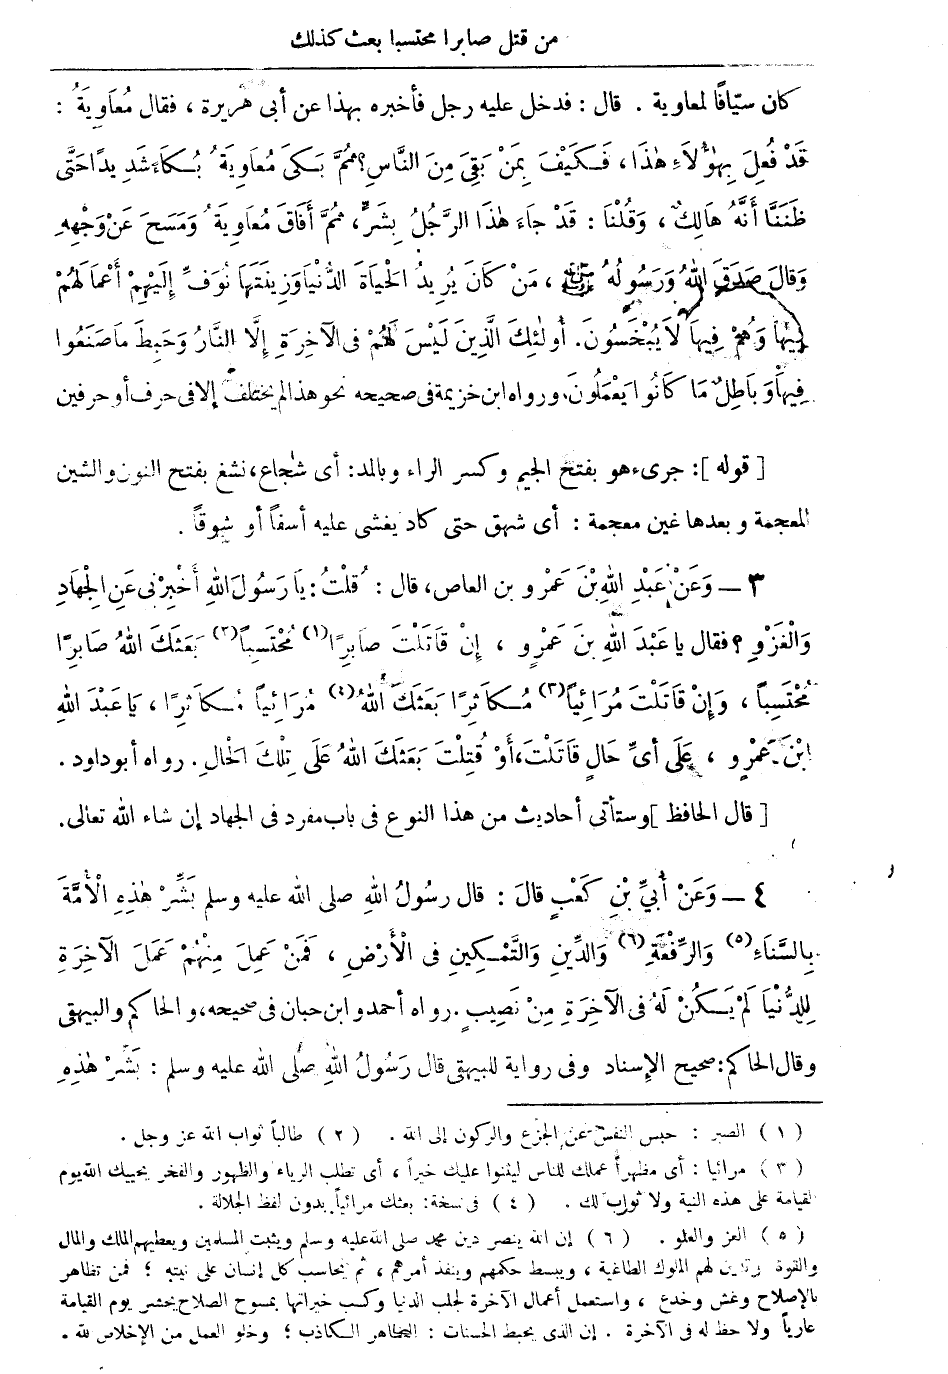 من قتل صابرا محتسبا بعث كذلك
كان سيّافًا لمعاوية . قال : فدخل عليه رجل فأخبره بهذا عن أبى هريرة ، فقال مُعَاوِيَةُ :
قَدْ فُعِلَ بِهٰؤُلَاءِ هٰذَا ، فَكَيْفَ بِمَنْ بَقِىَ مِنَ النَّاسِ؟ ثُمَّ بَكَى مُعَاوِيَةُ بُكَاءً شَدِيدًا حَتَّى
ظَنَنَّا أَنَّهُ هَالِكٌ ، وَقُلْنَا : قَدْ جَاءَ هٰذَا الرَّجُلُ بِشَرٍّ ، ثُمَّ أَفَاقَ مُعَاوِيَةُ وَمَسَحَ عَنْ وَجْهِهِ
وَقَالَ صَدَقَ اللهُ وَرَسُولُهُ ﷺ ، مَنْ كَانَ يُرِيدُ الْحَيَاةَ الدُّنْيَا وَزِينَتَهَا نُوَفِّ إِلَيْهِمْ أَعْمَالَهُمْ
فِيهَا وَهُمْ فِيهَا لَا يُبْخَسُونَ. أُولٰئِكَ الَّذِينَ لَيْسَ لَهُمْ فِى الآخِرَةِ إِلَّا النَّارُ وَحَبِطَ مَا صَنَعُوا
فِيهَا وَبَاطِلٌ مَا كَانُوا يَعْمَلُونَ. ورواه ابن خزيمة فى صحيحه نحو هذا لم يختلف إلا فى حرف أو حرفين
[ قوله ]: جرىء هو بفتح الجيم وكسر الراء وبالمد: أى شجاع، نشغ بفتح النون والشين
المعجمة وبعدها غين معجمة : أى شهق حتى كاد يغشى عليه أسفاً أو شوقاً .
٣ — وَعَنْ عَبْدِ اللهِ بْنِ عَمْرِو بن العاص، قال : قُلْتُ: يَا رَسُولَ اللهِ أَخْبِرْنِى عَنِ الْجِهَادِ
وَالْغَزْوِ ؟ فقال يا عَبْدَ اللهِ بنَ عَمْرٍو ، إِنْ قَاتَلْتَ صَابِرًا (١) مُحْتَسِبًا (٢) بَعَثَكَ اللهُ صَابِرًا
مُحْتَسِبًا ، وَإِنْ قَاتَلْتَ مُرَائِيًا (٣) مُكَاثِرًا بَعَثَكَ اللهُ (٤) مُرَائِيًا مُكَاثِرًا ، يَا عَبْدَ اللهِ
ابْنَ عَمْرٍو ، عَلَى أَىِّ حَالٍ قَاتَلْتَ، أَوْ قُتِلْتَ بَعَثَكَ اللهُ عَلَى تِلْكَ الْحَالِ. رواه أبو داود .
[ قال الحافظ ] وستأتى أحاديث من هذا النوع فى باب مفرد فى الجهاد إن شاء الله تعالى.
٤ — وَعَنْ أُبَيِّ بْنِ كَعْبٍ قَالَ : قال رسُولُ اللهِ صلى الله عليه وسلم بَشِّرْ هٰذِهِ الْأُمَّةَ
بِالسَّنَاءِ (٥) وَالرِّفْعَةِ (٦) وَالدِّينِ وَالتَّمْكِينِ فى الْأَرْضِ ، فَمَنْ عَمِلَ مِنْهُمْ عَمَلَ الآخِرَةِ
لِلدُّنْيَا لَمْ يَكُنْ لَهُ فى الآخِرَةِ مِنْ نَصِيبٍ. رواه أحمد وابن حبان فى صحيحه، والحاكم والبيهقى
وقال الحاكم: صحيح الإسناد وفى رواية للبيهقى قال رَسُولُ اللهِ صلى الله عليه وسلم : بَشِّرْ هٰذِهِ
( ١ ) الصبر : حبس النفس عن الجزع والركون إلى الله . ( ٢ ) طالباً ثواب الله عز وجل .
( ٣ ) مرائيا : أى مظهراً عملك للناس ليثنوا عليك خيراً ، أى تطلب الرياء والظهور والفخر يحييك الله يوم
القيامة على هذه النية ولا ثواب لك . ( ٤ ) فى نسخة: بعثك مرائياً بدون لفظ الجلالة .
( ٥ ) العز والعلو . ( ٦ ) إن الله ينصر دين محمد صلى الله عليه وسلم ويثبت المسلمين ويعطيهم الملك والمال
والقوة وتلين لهم الملوك الطاغية ، ويبسط حكمهم وينفذ أمرهم ، ثم يحاسب كل إنسان على نيته ؛ فمن تظاهر
بالإصلاح وغش وخدع ، واستعمل أعمال الآخرة لجلب الدنيا وكسب خيراتها بمسوح الصلاح يحشر يوم القيامة
عارياً ولا حظ له فى الآخرة . إن الذى يحبط الحسنات : التظاهر الكاذب ؛ وخلو العمل من الإخلاص لله .